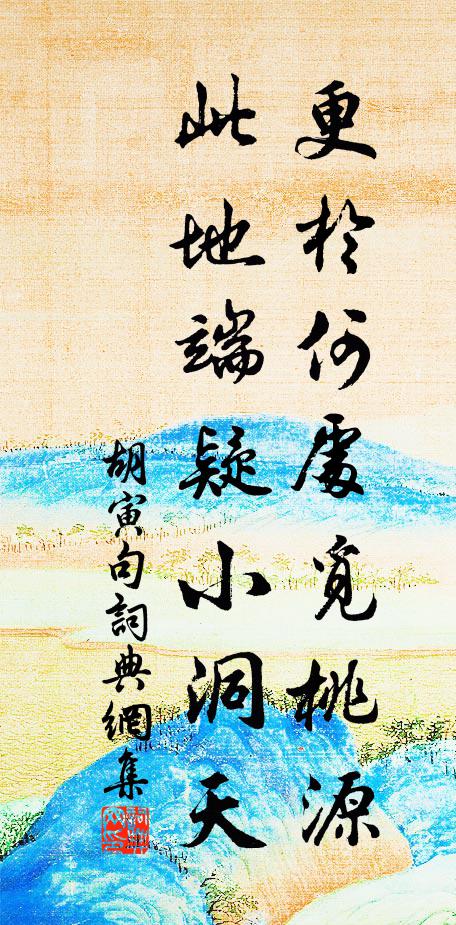 更於何處覓桃源
此地端疑小洞天
胡寅句詞典網集